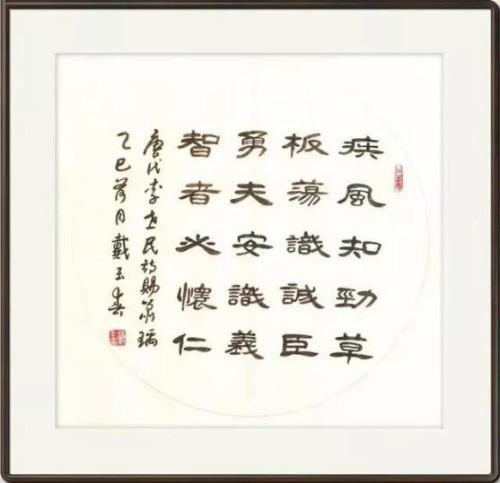 疾風知勁草
板蕩識誠臣
勇夫安識義
智者必懷仁
唐代李世民詩賜蕭瑀
乙巳荷月戴玉春